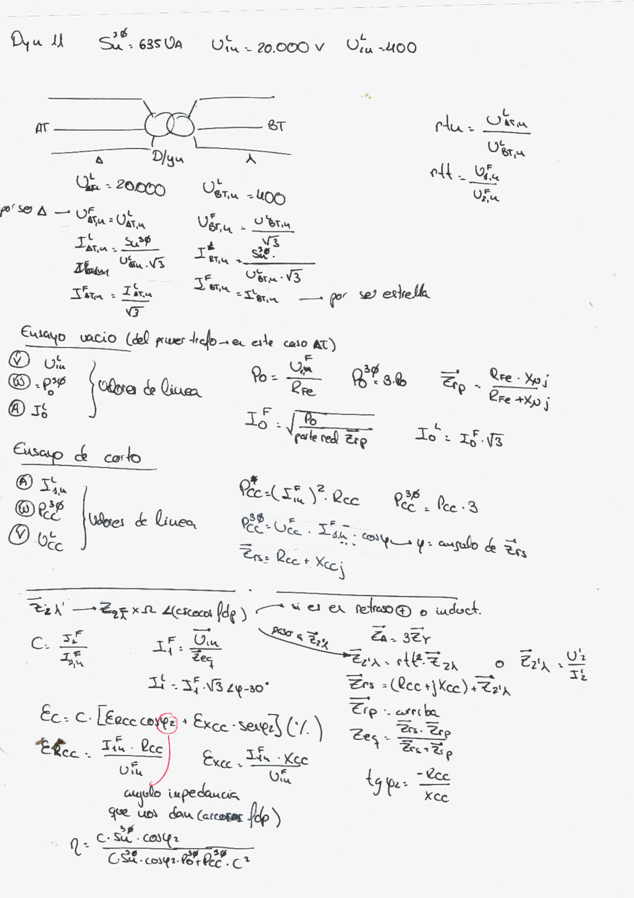 Dyn 11 Su³ᶲ = 635 UA U₁ₙᴸ = 20.000 V U₁ₙᴸ = 400
AT BT
Δ D/yn λ
rtu = Uᴸ_AT,n / Uᴸ_BT,n
rtt = U₁,ₙᶠ / U₂,ₙᶠ
Uᴸ_AT,n = 20.000 Uᴸ_BT,n = 400
por ser Δ → Uᶠ_AT,n = Uᴸ_AT,n Uᶠ_BT,n = Uᴸ_BT,n / √3
Iᴸ_AT,n = Su³ᶲ / Uᴸ_AT,n · √3 Iᴸ_BT,n = Su³ᶲ / Uᴸ_BT,n · √3
Iᶠ_AT,n = Iᴸ_AT,n / √3 Iᶠ_BT,n = Iᴸ_BT,n → por ser estrella
Ensayo vacio (del primer trafo → en este caso AT)
Ⓥ U₁ₙᴸ
Ⓦ = P₀³ᶲ } Valores de linea
Ⓐ I₀ᴸ
P₀ = U₁ₙᶠ / R_Fe P₀³ᶲ = 3·P₀ Z⃗rp = R_Fe · Xμ j / R_Fe + Xμ j
I₀ᶠ = √(P₀ / parte real Z⃗rp) I₀ᴸ = I₀ᶠ · √3
Ensayo de corto
Ⓐ I₁,ₙᴸ
Ⓦ Pcc³ᶲ } Valores de linea
Ⓥ Uccᴸ
Pcc = (I₁ₙᶠ)² · Rcc Pcc³ᶲ = Pcc · 3
Pcc³ᶲ = Uccᶠ · I₁,ₙᶠ · cosφ → φ = angulo de Z⃗rs
Z⃗rs = Rcc + Xcc j
Z⃗₂λ' → Z₂λ x Ω ∠(arcocos fdp) → si es en retraso ⊕ o induct.
paso a Z⃗₂'λ
Z⃗Δ = 3Z⃗Y
C = I₂ᶠ / I₂,ₙᶠ I₁ᶠ = U⃗₁ₙ / Z⃗eq
Z⃗₂'λ = rtt² · Z⃗₂λ o Z⃗₂'λ = U₂' / I₂'
I₁ᴸ = I₁ᶠ · √3 ∠φ-30°
Z⃗rs = (Rcc + jXcc) + Z⃗₂'λ
Z⃗rp = arriba
Ɛc = C · [ƐRcc cosφ₂ + ƐXcc · senφ₂] (%)
Zeq = Z⃗rs · Z⃗rp / Z⃗rs + Z⃗rp
ƐRcc = I₁ₙᶠ · Rcc / U₁ₙᶠ ƐXcc = I₁ₙᶠ · Xcc / U₁ₙᶠ
tgφ₂ = -Rcc / Xcc
angulo impedancia
que nos dan (arcocos fdp)
η = C · Su³ᶲ · cosφ₂ / C·Su³ᶲ · cosφ₂ · P₀³ᶲ + Pcc³ᶲ · C²